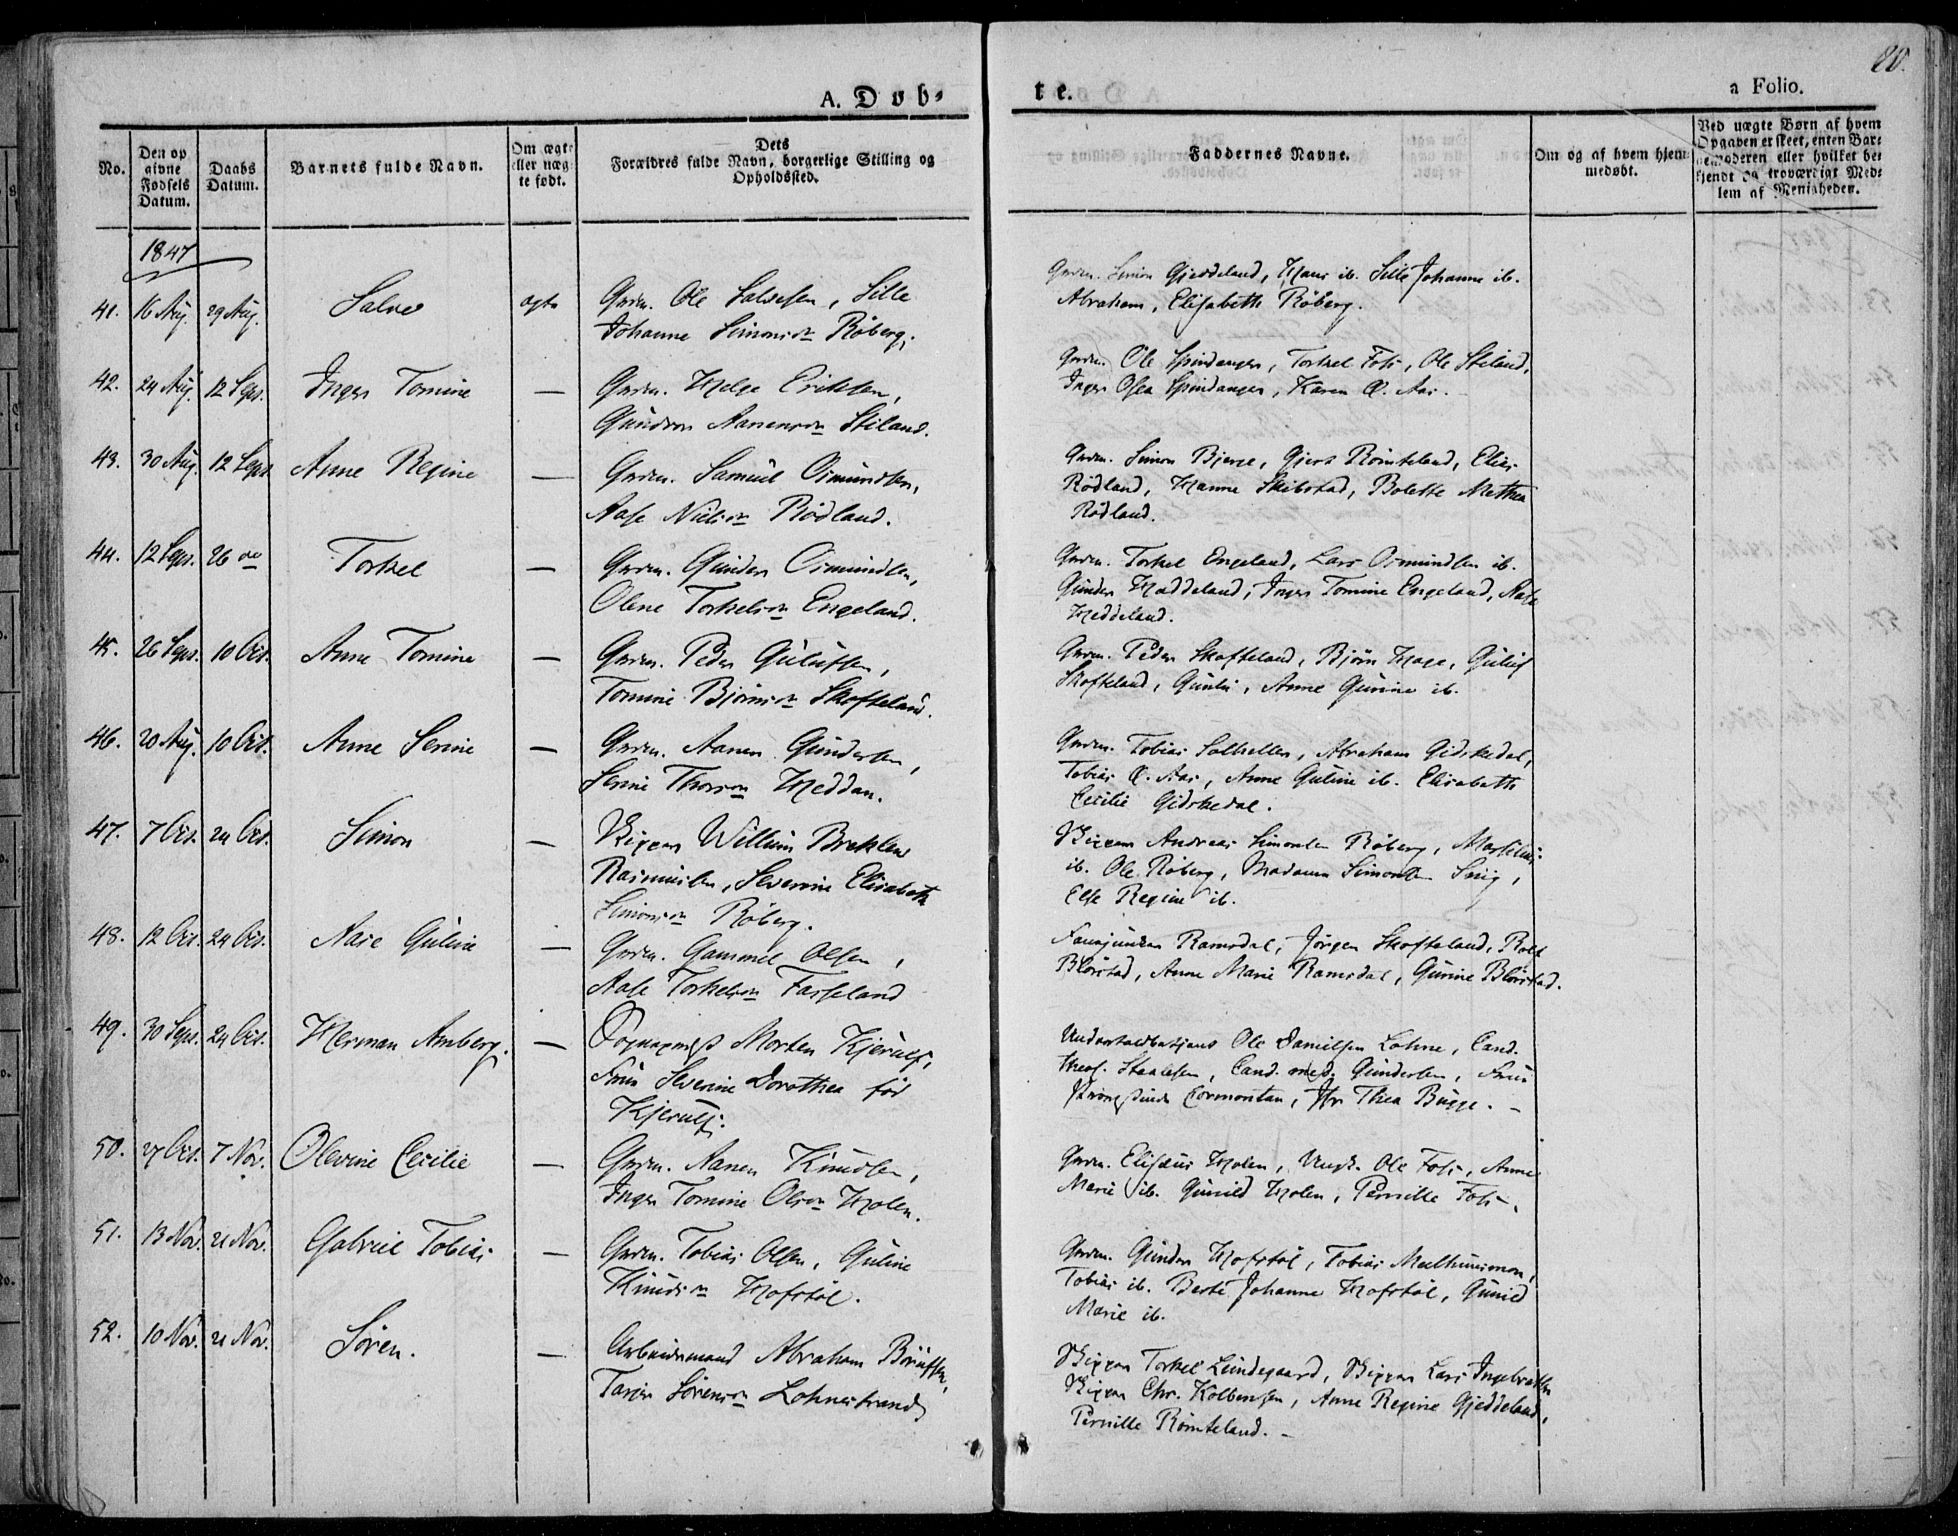 A. Døb-
te.
80.
a Folio.
No.
Den op
givne
Fødsels
Datum.
Daabs
Datum.
Barnets fulde Navn.
Om ægte
eller uæg-
te født.
Dets
Forældres fulde Navn, borgerlige Stilling og
Opholdssted.
Faddernes Navne.
Om og af hvem hjem-
medøbt.
Ved uægte Børn af hvem
Opgaven er skeet, enten Bar-
nemoderen eller hvilket be-
kjendt og troværdigt Med-
lem af Menigheden.
1847
41. 16 Aug. 29 Aug. Salve ægte Grdm. Ole Salvesen, Sille
Johanne Simonsn Røberg.
Grdm. Simon Gjeddeland, Hans ib. Sille Johanne ib.
Abraham, Elisabeth Røberg.
42. 24 Aug. 12 Sept. Inger Tomine — Grdm. Helge Eriksen,
Gundror Aanensn Stiland.
Grdm. Ole Spindanger, Torkel Foss, Ole Stiland,
Inger Olea Spindanger, Karen Ø. Aas.
43. 30 Aug. 12 Sept. Anne Regine — Grdm. Samuel Osmundsen,
Aase Nielsn Rødland.
Grdm. Simon Bjerge, Gjert Rømteland, Elias
Rødland, Hanne Skibstad, Bolette Mathea
Rødland.
44. 12 Sept. 26 do Torkel — Grdm. Gunder Osmundsen,
Olene Torkelsn Engeland.
Grdm. Torkel Engeland, Lars Osmundsen ib.
Gunder Heddeland, Inger Tomine Engeland, Aase
Heddeland.
45. 26 Sept. 10 Oct. Anne Tomine — Grdm. Peder Gulufsen,
Tomine Bjørnsn Skofteland.
Grdm. Peder Skofteland, Bjørn Hage, Guluf
Skofteland, Gunlu, Anne Gurine ib.
46. 20 Aug. 10 Oct. Anne Serine — Grdm. Aanen Gundersen,
Serine Thorsn Heddan.
Grdm. Tobias Solhellen, Abraham Gidskedal,
Tobias Ø. Aas, Anne Guline ib. Elisabeth
Cecilie Gidskedal.
47. 7 Oct. 24 Oct. Simon — Skipper Willum Brekler
Rasmussen, Severine Elisabeth
Simonsn Røberg.
Skipper Andreas Simonsen Røberg, Marselius
ib. Ole Røberg, Madame Simonsen Snig,
Else Regine ib.
48. 12 Oct. 24 Oct. Aase Guline — Grdm. Gammel Olsen,
Aase Torkelsn Fasseland
Fannjunker Ramsdal, Jørgen Skofteland, Rolf
Blørstad, Anne Marie Ramsdal, Gurine Blørstad.
49. 30 Sept. 24 Oct. Herman Amberg. — Sognepræst Morten Kjerulf,
Frue Severine Dorothea fød
Kjerulf.
Underfoldbetjent Ole Danielsen Lohne, Cand.
theol. Staalesen, Cand. med. Gundersen, Frue
Cormontan, Jfr Thea Bugge. -
50. 27 Oct. 7 Nov. Olevine Cecilie — Grdm. Aanen Knudsen,
Inger Tomine Olsn Holen.
Grdm. Elisæus Holen, Ungk. Ole Foss, Anne
Marie ib. Gunild Holen, Pernille Foss.
51. 13 Nov. 21 Nov. Gabriel Tobias — Grdm. Tobias Olsen, Guline
Knudsn Hofstøl.
Grdm. Gunder Hofstøl, Tobias
Tobias ib. Berte Johanne Hofstøl, Gunild
Marie ib.
52. 10 Nov. 21 Nov. Søren. — Arbeidsmand Abraham Børufsen,
Tarjer Sørensn Lohnestrand
Skipper Torkel Lundegaard, Skipper Lars Ingebretsen
Skipper Chr. Kolbensen, Anne Regine Gjeddeland,
Pernille Rømteland. -